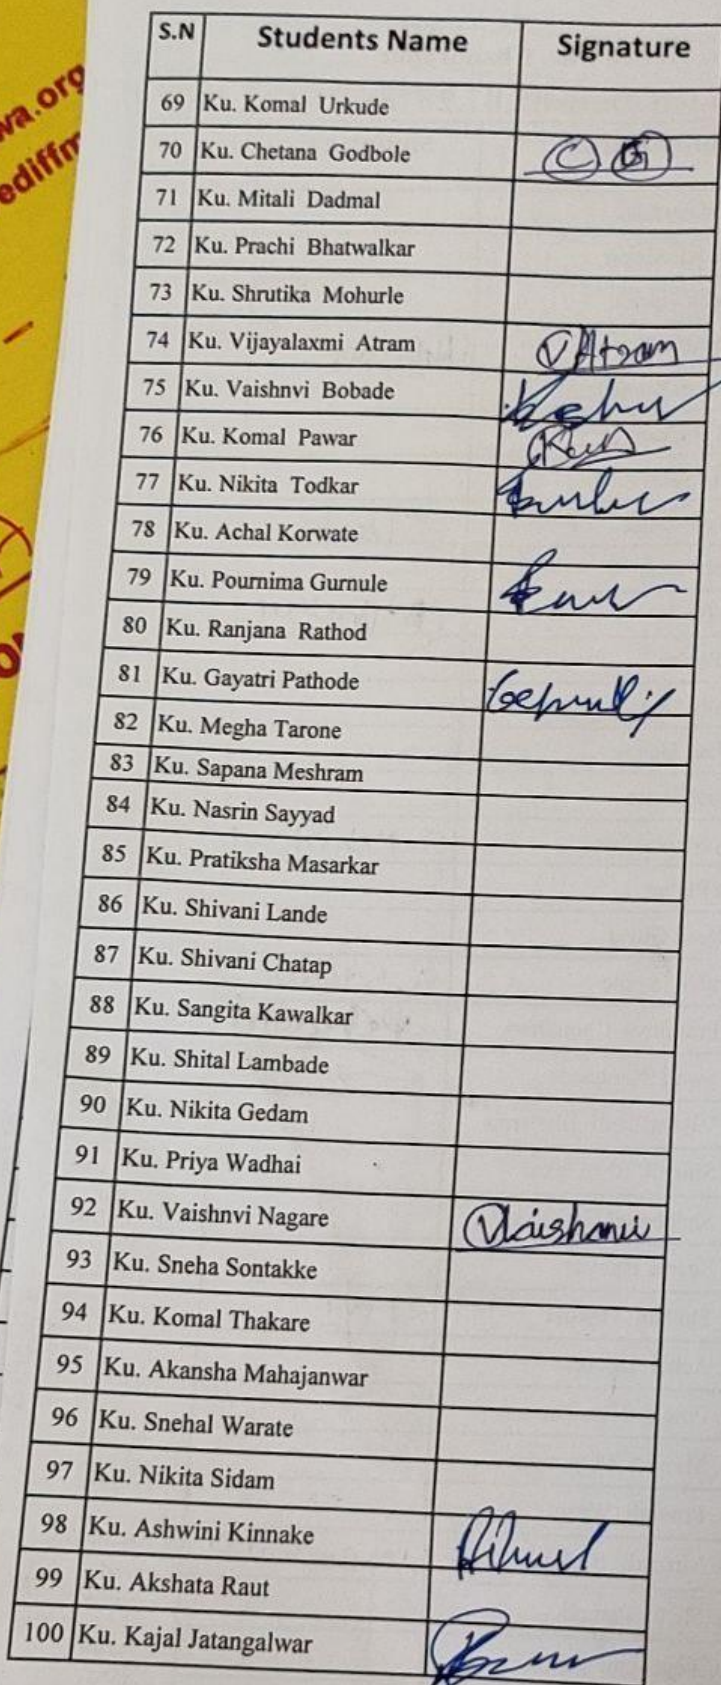 wa.org
ediffm
S.N Students Name Signature
69 Ku. Komal Urkude
70 Ku. Chetana Godbole C G
71 Ku. Mitali Dadmal
72 Ku. Prachi Bhatwalkar
73 Ku. Shrutika Mohurle
74 Ku. Vijayalaxmi Atram VAtram
75 Ku. Vaishnvi Bobade
76 Ku. Komal Pawar
77 Ku. Nikita Todkar
78 Ku. Achal Korwate
79 Ku. Pournima Gurnule
80 Ku. Ranjana Rathod
81 Ku. Gayatri Pathode
82 Ku. Megha Tarone
83 Ku. Sapana Meshram
84 Ku. Nasrin Sayyad
85 Ku. Pratiksha Masarkar
86 Ku. Shivani Lande
87 Ku. Shivani Chatap
88 Ku. Sangita Kawalkar
89 Ku. Shital Lambade
90 Ku. Nikita Gedam
91 Ku. Priya Wadhai
92 Ku. Vaishnvi Nagare Vaishanvi
93 Ku. Sneha Sontakke
94 Ku. Komal Thakare
95 Ku. Akansha Mahajanwar
96 Ku. Snehal Warate
97 Ku. Nikita Sidam
98 Ku. Ashwini Kinnake
99 Ku. Akshata Raut
100 Ku. Kajal Jatangalwar